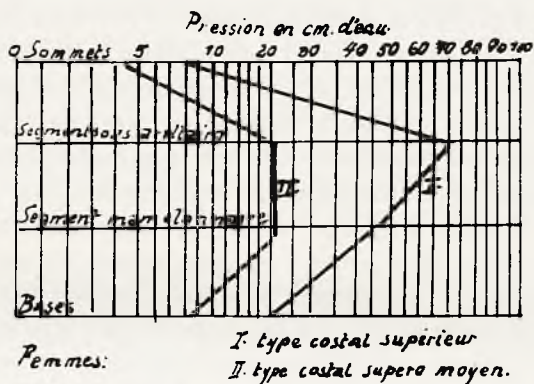 Pression en cm. d'eau.
0 Sommets 5 10 20 30 40 50 60 70 80 90 100
Segment sous axillaire
II I
Segmentt mamelonnaire
Bases
Femmes:
I. type costal supérieur
II. type costal supero moyen.